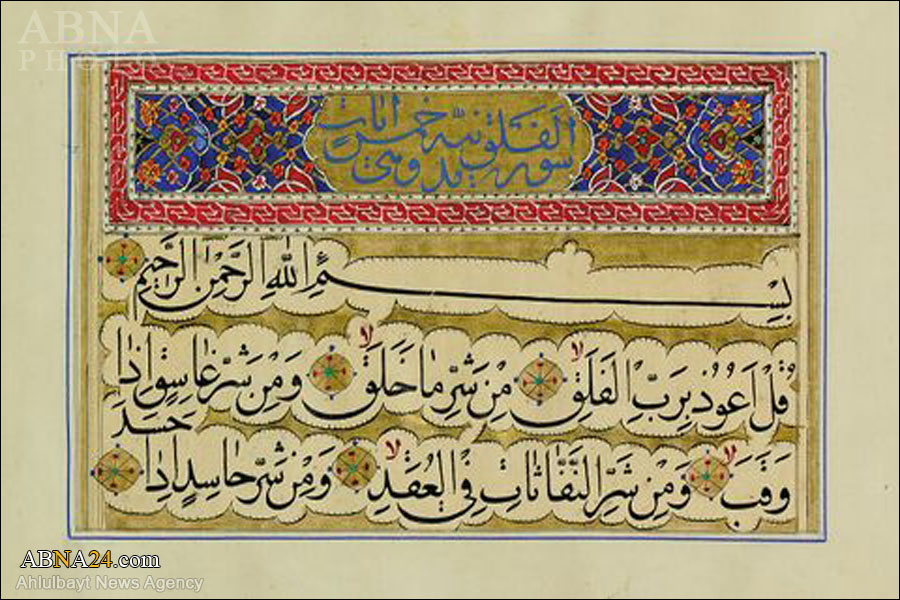 ABNA
PHOTO
سورة الفلق خمس آيات
بِسْمِ اللَّهِ الرَّحْمٰنِ الرَّحِيمِ
قُلْ اَعُوذُ بِرَبِّ الْفَلَقِ لا مِنْ شَرِّ مَا خَلَقَ لا وَمِنْ شَرِّ غَاسِقٍ اِذَا
وَقَبَ لا وَمِنْ شَرِّ النَّفَّاثَاتِ فِي الْعُقَدِ لا وَمِنْ شَرِّ حَاسِدٍ اِذَا حَسَدَ
ABNA24.com
Ahlulbayt News Agency